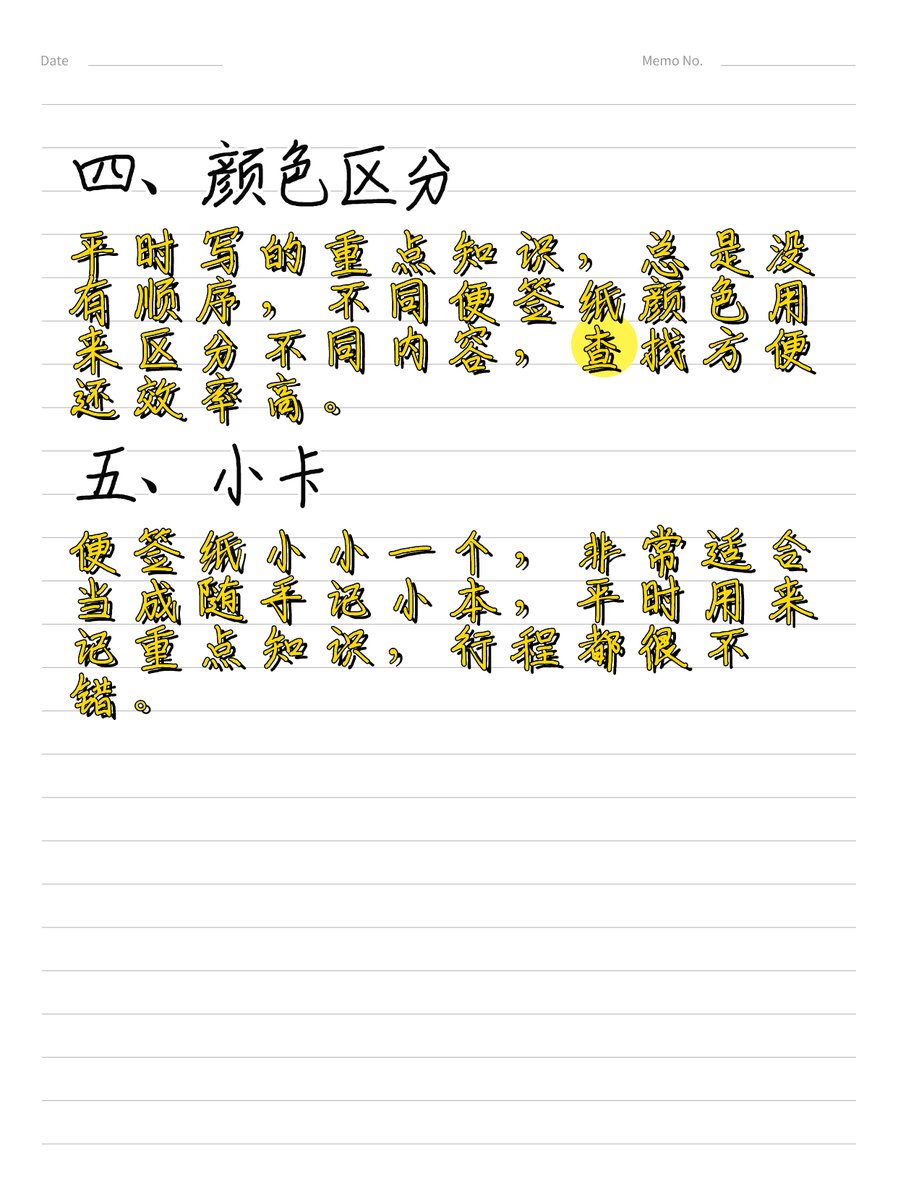 Date Memo No.
四、颜色区分
平时写的重点知识，总是没
有顺序，不同便签纸颜色用
来区分不同内容，查找方便
还效率高。
五、小卡
便签纸小小一个，非常适合
当成随手记小本，平时用来
记重点知识，行程都很不
错。